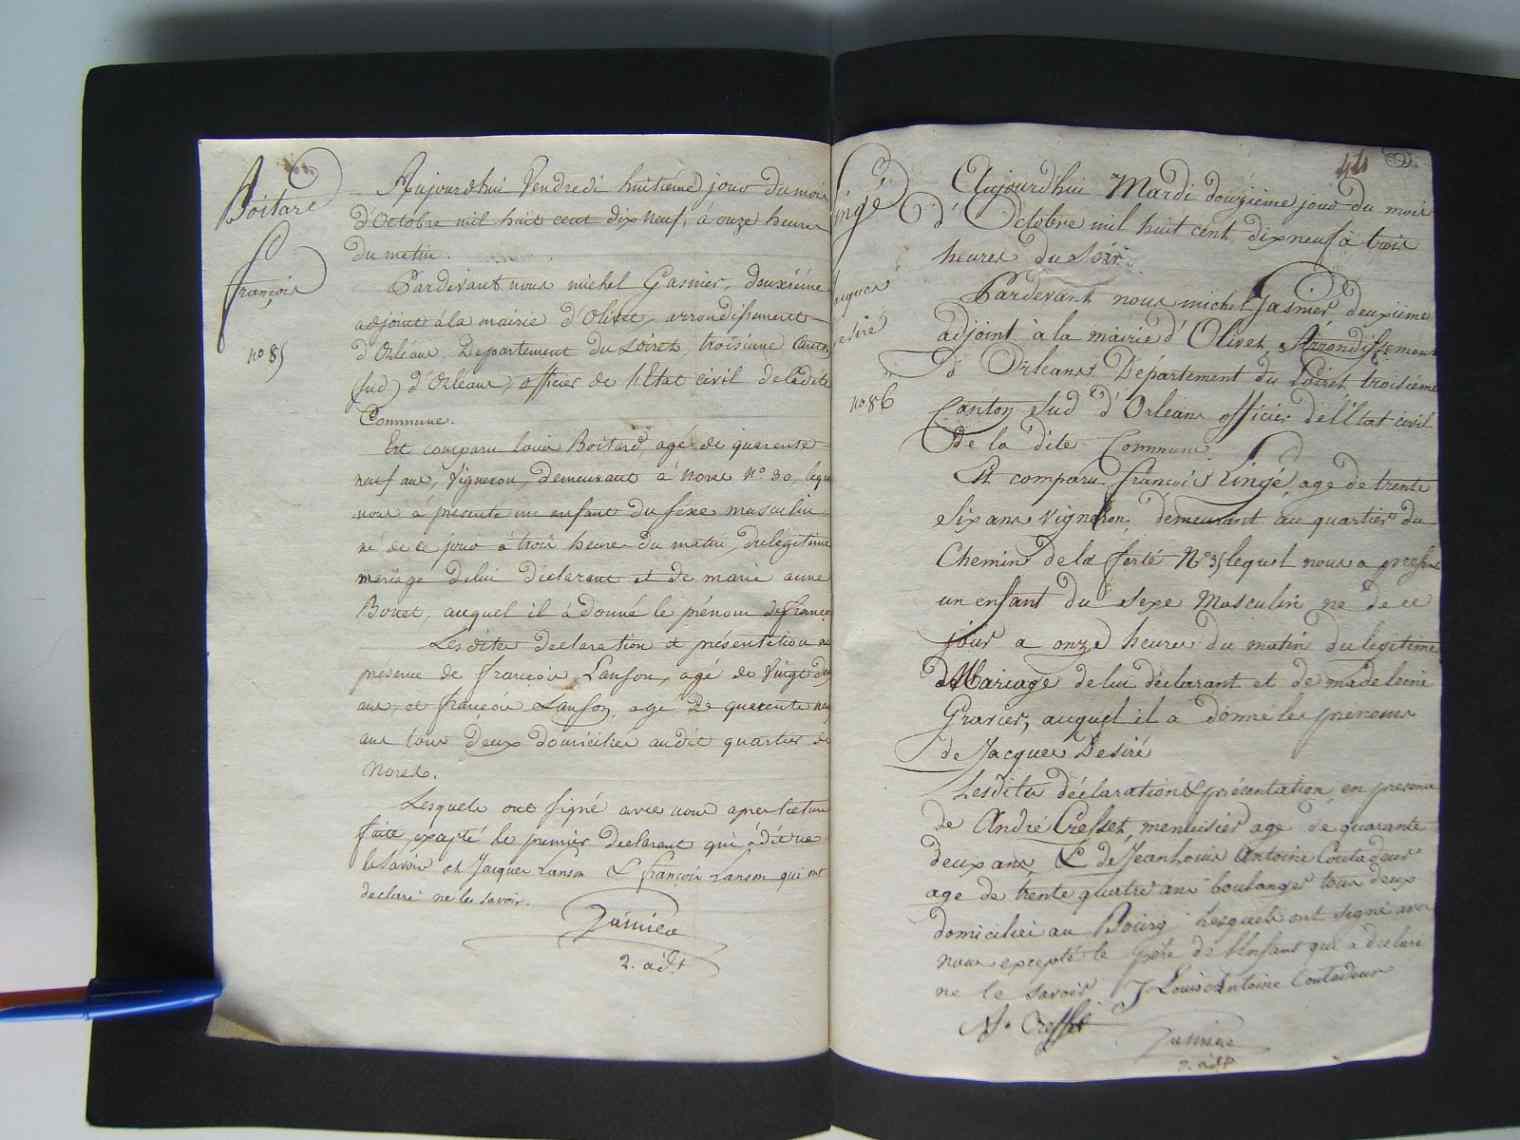 Boitard
François
n° 85
Aujourdhui Vendredi huitième jour du mois
d'Octobre mil huit cent dix neuf, à onze heures
du matin.
Pardevant nous michel Gasnier, deuxième
adjoint à la mairie d'Olivet, arrondissement
d'Orléans, Departement du Loiret, troisieme Canton
(sud) d'Orléans, officier de l'Etat civil de ladite
Commune.
Est comparu louis Boitard, agé de quarente
neuf ans, Vigneron, demeurant à Noras N° 30, lequel
nous à présenté un enfant du sexe masculin
né de ce jour à trois heures du matin, du légitime
mariage de lui déclarant et de marie anne
Bouet, auquel il à donné le prénom de françois
Lesdites declaration et présentation en
presence de françois Lanson, agé de vingt
ans, et françois Lanson, agé de quarente
ans tous deux domiciliés audit quartier de
Noras.
Lesquels ont signé avec nous apres lecture
faite, excepté le premier declarant qui à dit ne
le savoir et Jacques Lanson & françois Lanson qui ont
declaré ne le savoir.
Gasnier
2. adjt
44
Lingé
Jacques
desiré
n° 86
Aujourd'hui Mardi douzieme jour du mois
d'Octobre mil huit cent dix neuf à trois
heures du Soir.
Pardevant nous michel Gasnier deuxieme
adjoint à la mairie d'Olivet, Arrondissement
d'Orleans Département du Loiret, troisième
Canton sud d'Orleans officier de l'Etat civil
de la dite Commune.
Est comparu françois Lingé, age de trente
Six ans vigneron, demeurant au quartier du
Chemin de la ferté N° 35 lequel nous a presenté
un enfant du sexe Masculin né de ce
jour a onze heures du matin du légitime
Mariage de lui déclarant et de madeleine
Gravier, auquel il a donné les prénoms
de Jacques Desiré
Lesdites déclaration & présentation en presence
de André Cresset, menuisier age de quarante
deux ans & de Jean Louis Antoine Coutadeur
age de trente quatre ans boulanger tous deux
domiciliés au Bourg lesquels ont signé avec
nous excepté le père de l'Enfant qui a déclaré
ne le savoir J Louis Antoine Coutadeur
A. Cresset
Gasnier
2. adjt